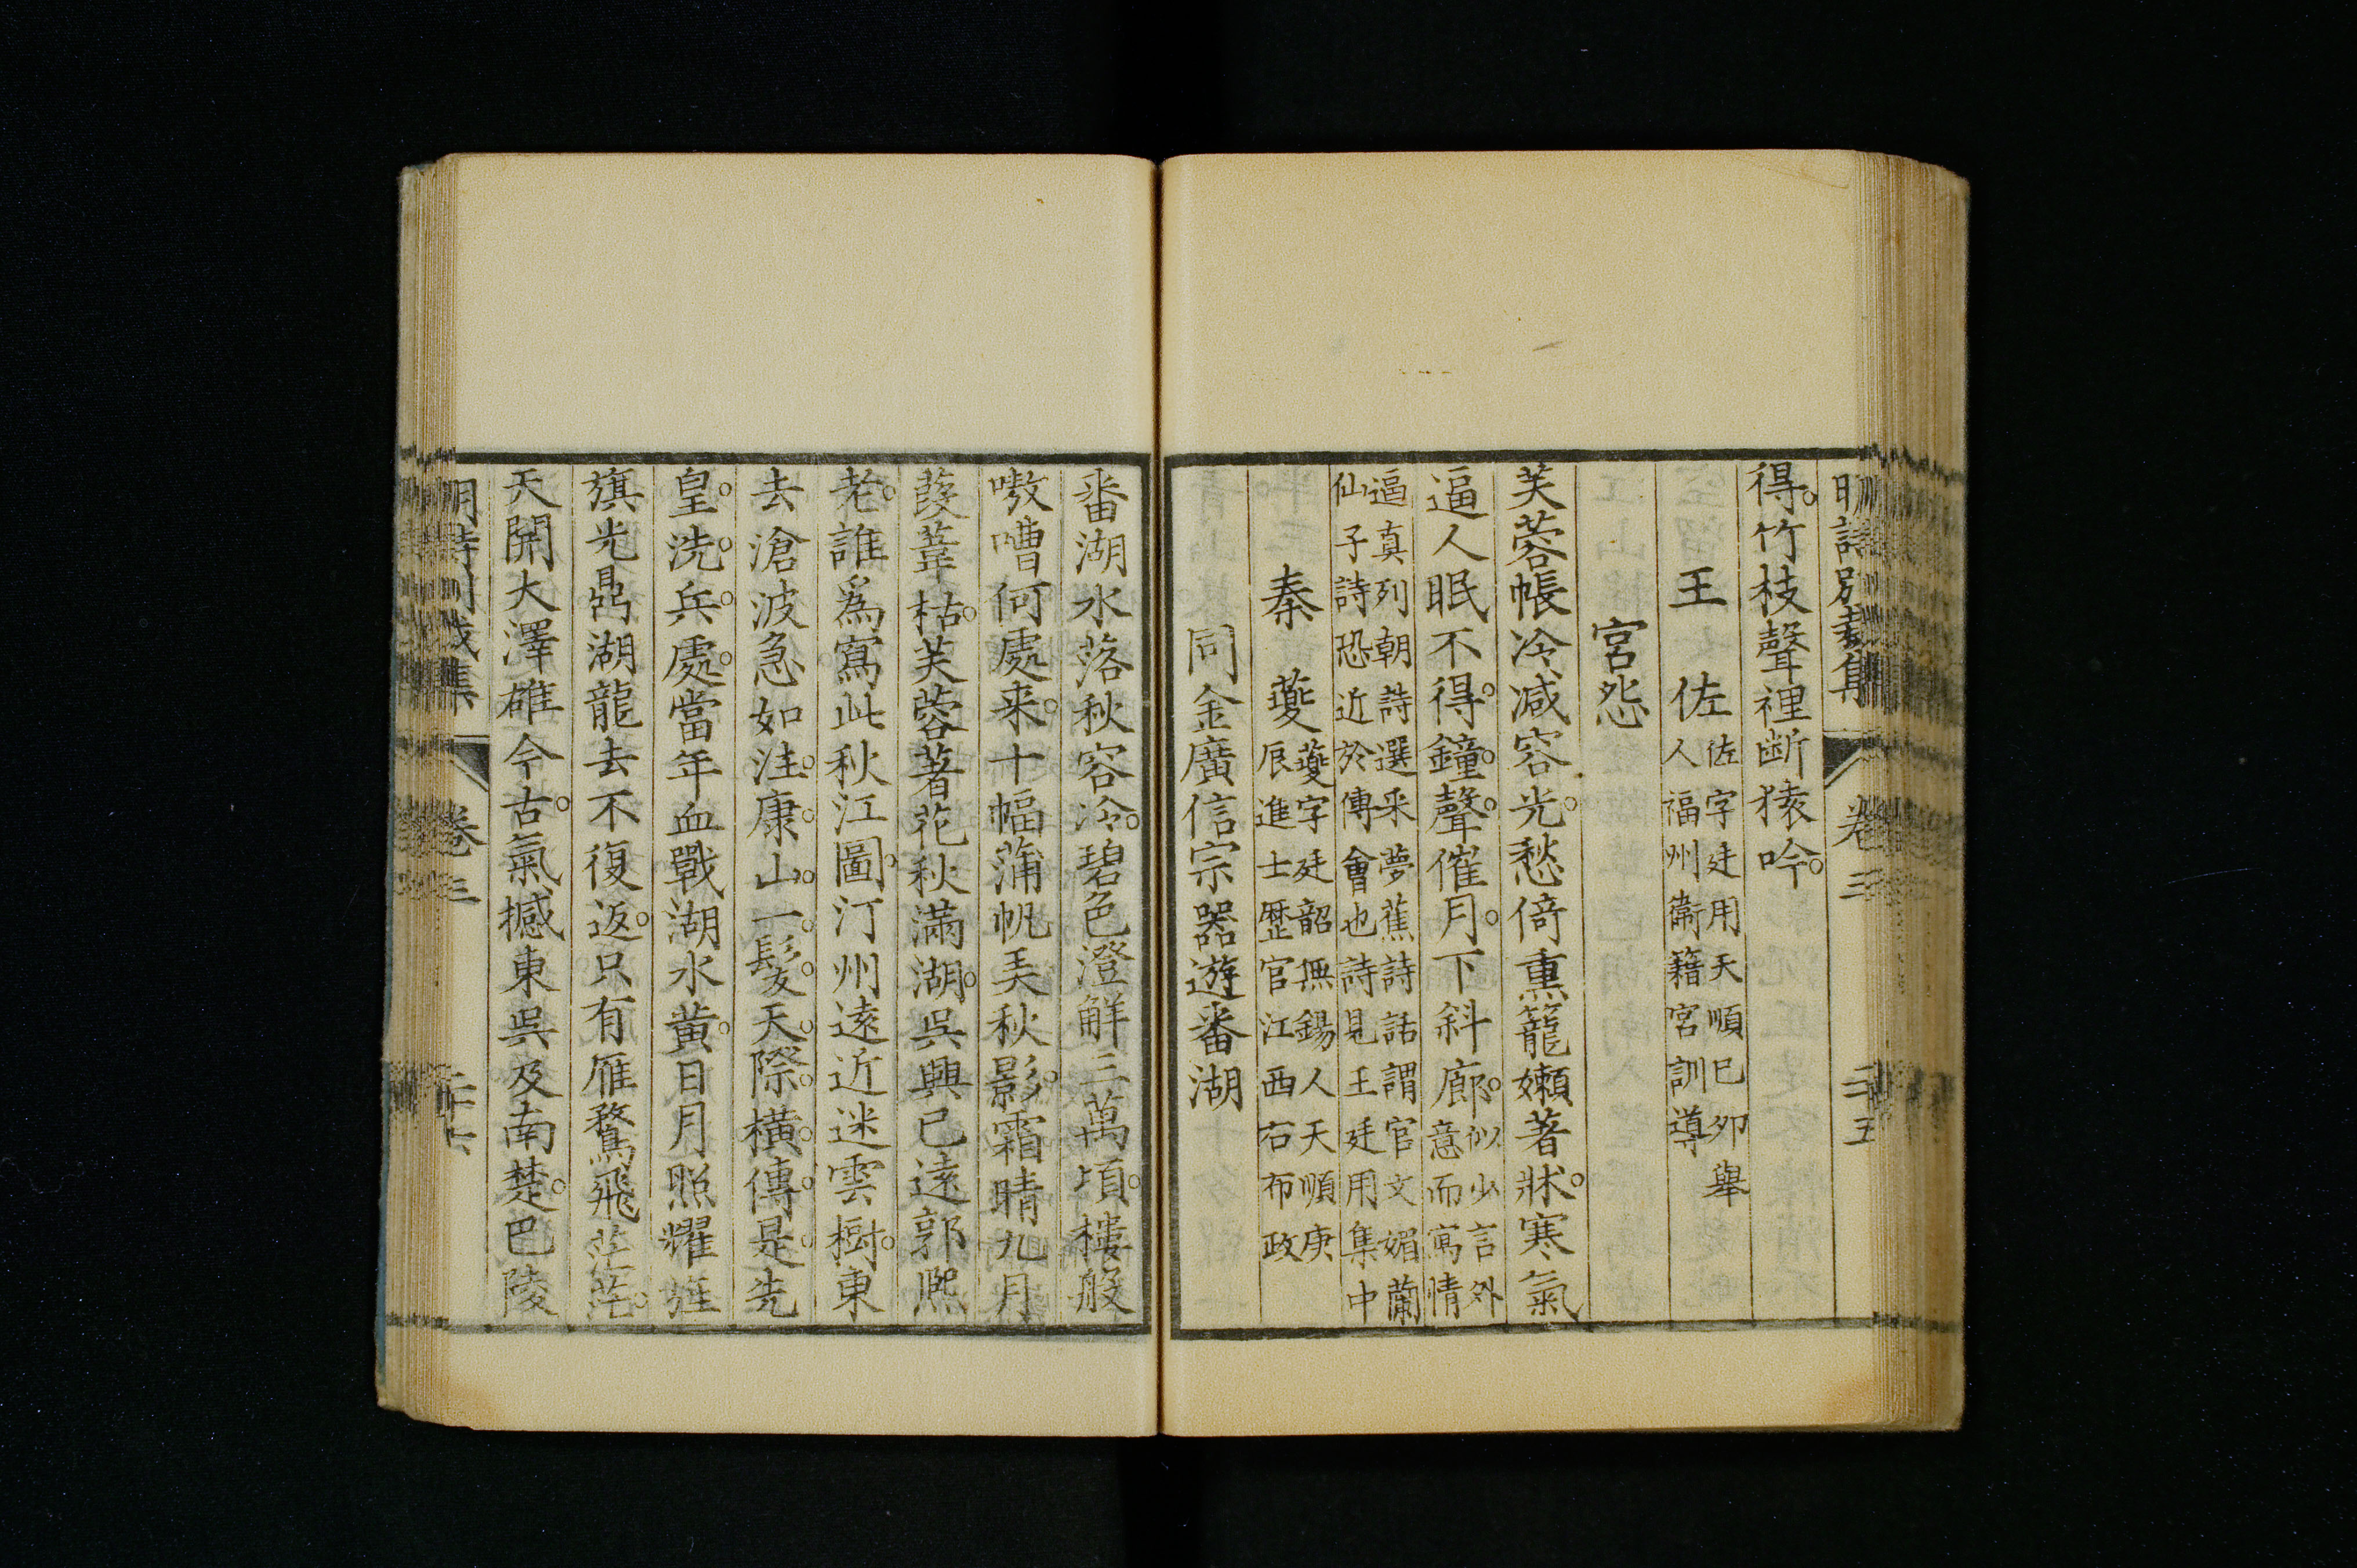 明詩別裁集 卷三 二十五
得。竹枝聲裡斷猿吟。
王 佐 佐字廷用天順己卯舉
人福州衛籍宮訓導
宮怨
芙蓉帳冷減容光。愁倚熏籠嬾著牀。寒氣
逼人眠不得。鐘聲催月下斜廊。似少言外
意而寫情
逼真列朝詩選采夢蕉詩話謂官文媚蘭
仙子詩恐近於傅會也詩見王廷用集中
秦 夔 夔字廷韶無錫人天順庚
辰進士歷官江西右布政
同金廣信宗器遊番湖
番湖水落秋容冷。碧色澄鮮三萬頃。樓般
嗷嘈何處来。十幅蒲帆美秋影。霜晴九月
葭葦枯。芙蓉著花秋滿湖。吳興已遠郭熈
老。誰爲寫此秋江圖。汀州遠近迷雲樹。東
去滄波急如注。康山一髮天際橫。傳是先
皇洗兵處。當年血戰湖水黃。日月照耀旌
旗光。鼎湖龍去不復返。只有雁鶩飛茫茫。
天開大澤雄今古。氣撼東吳及南楚。巴陵
明詩別裁集 卷三 二十六